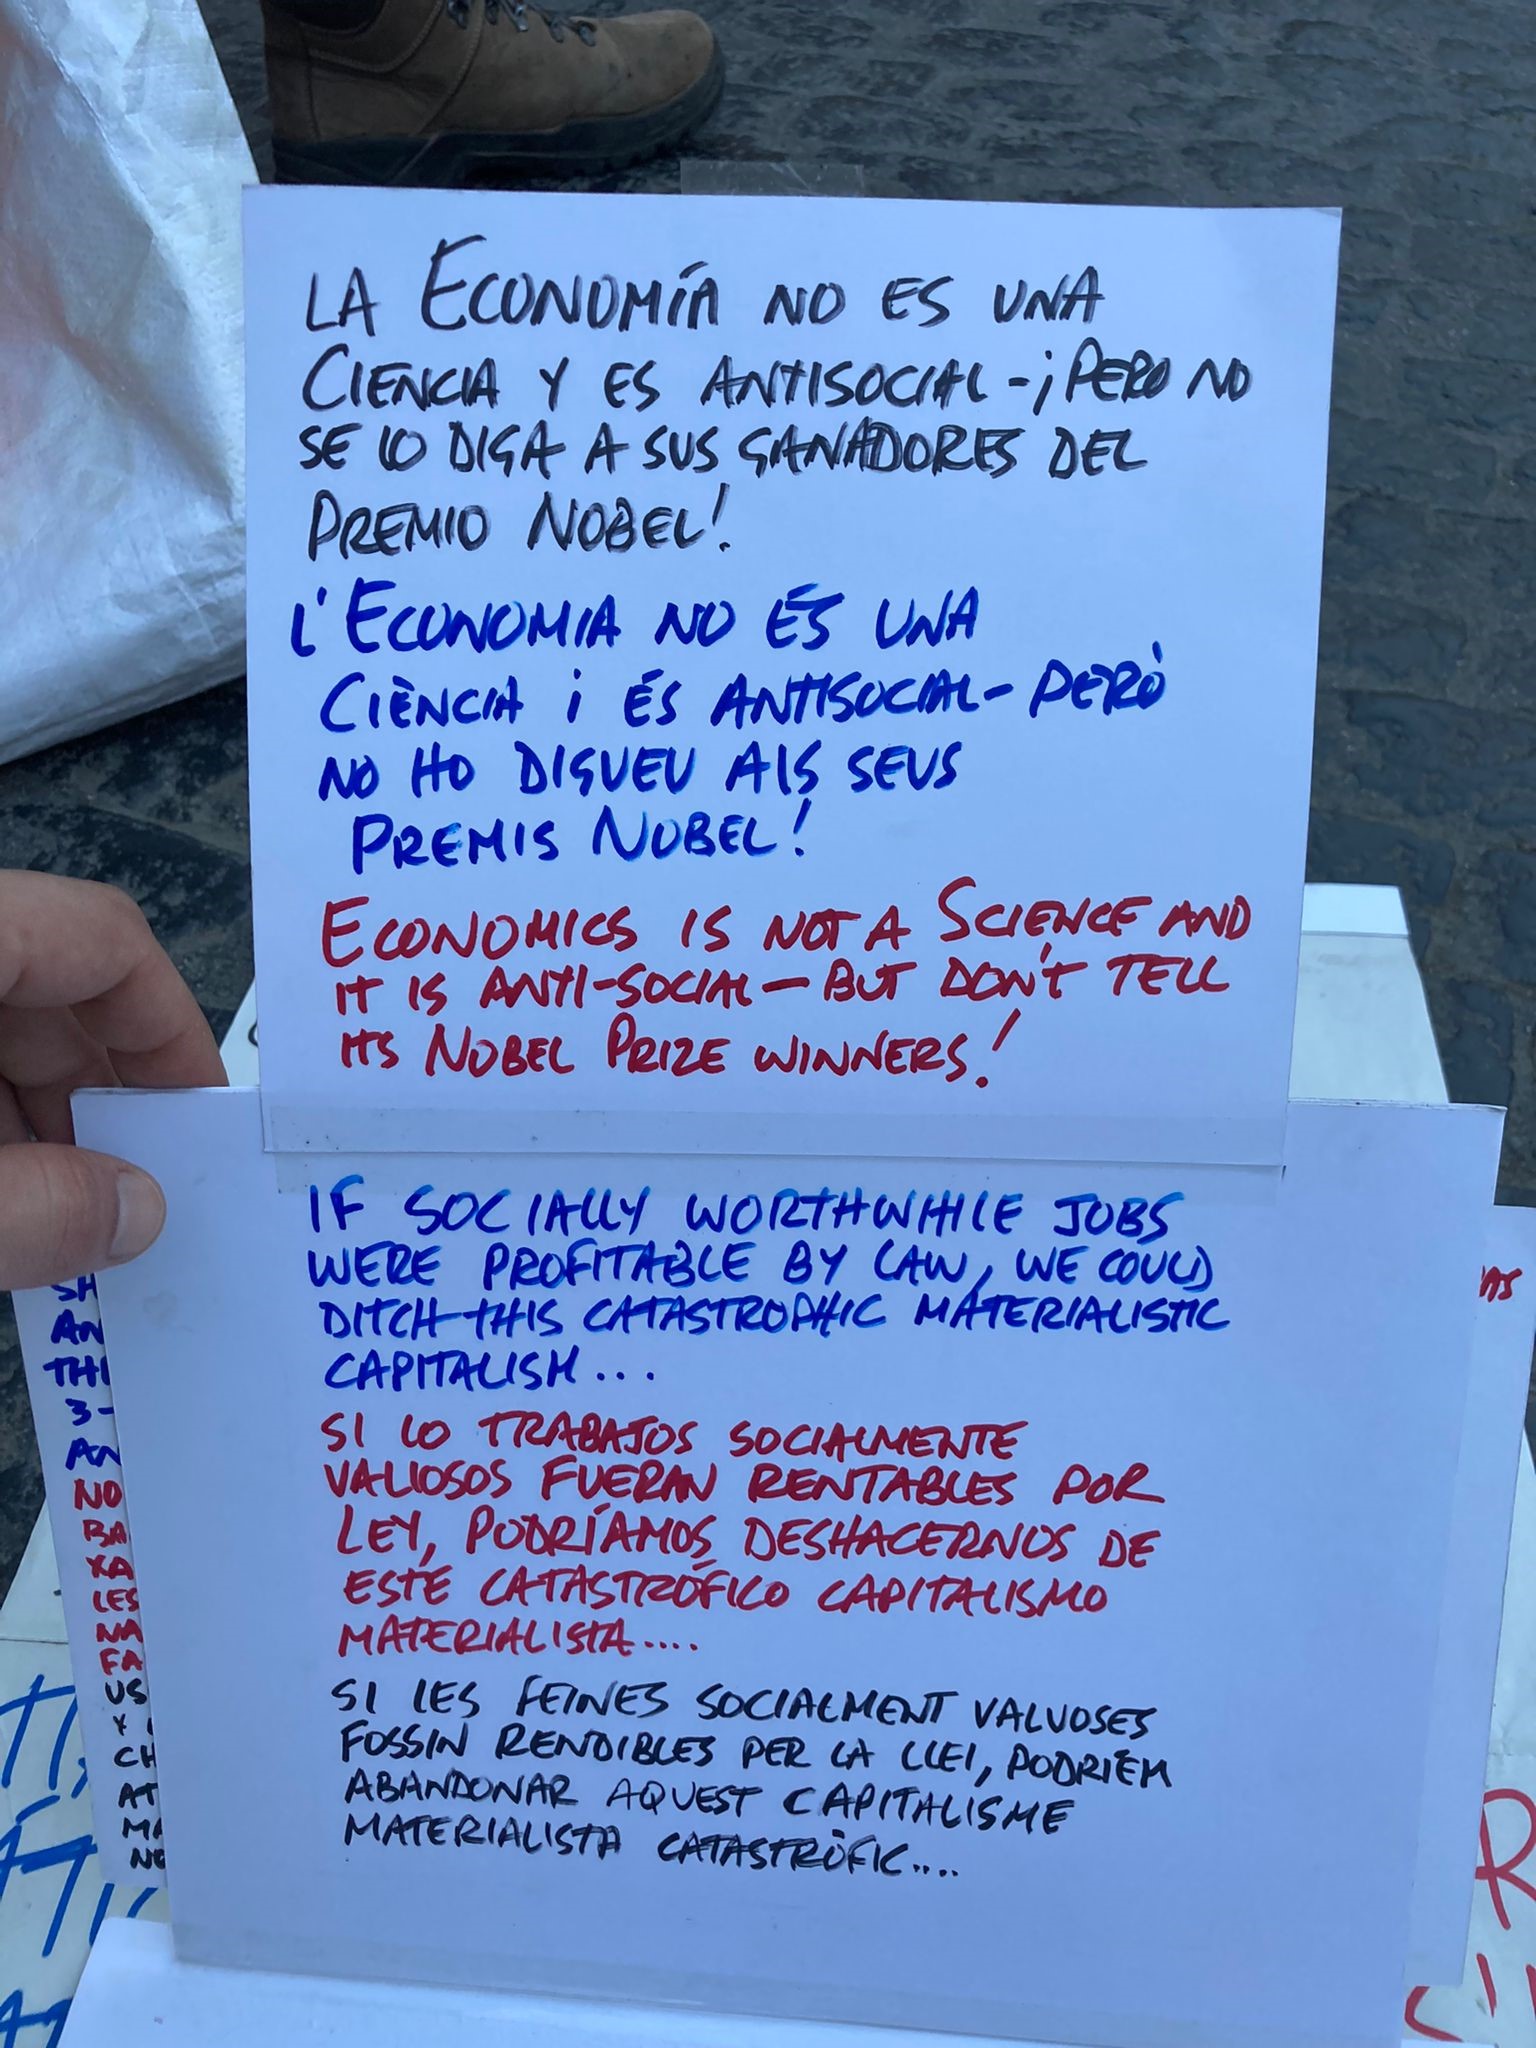 LA ECONOMÍA NO ES UNA
CIENCIA Y ES ANTISOCIAL - ¡PERO NO
SE LO DIGA A SUS GANADORES DEL
PREMIO NOBEL!
L'ECONOMIA NO ÉS UNA
CIÈNCIA i ÉS ANTISOCIAL - PERÒ
NO HO DIGUEU ALS SEUS
PREMIS NOBEL!
ECONOMICS IS NOT A SCIENCE AND
IT IS ANTI-SOCIAL - BUT DON'T TELL
ITS NOBEL PRIZE WINNERS!
IF SOCIALLY WORTHWHILE JOBS
WERE PROFITABLE BY LAW, WE COULD
DITCH THIS CATASTROPHIC MATERIALISTIC
CAPITALISM...
SI LO TRABAJOS SOCIALMENTE
VALIOSOS FUERAN RENTABLES POR
LEY, PODRÍAMOS DESHACERNOS DE
ESTE CATASTRÓFICO CAPITALISMO
MATERIALISTA....
SI LES FEINES SOCIALMENT VALUOSES
FOSSIN RENDIBLES PER LA LLEI, PODRIEM
ABANDONAR AQUEST CAPITALISME
MATERIALISTA CATASTRÒFIC....
SH
AN
THI
3-
AN
NO
BA
XA
LES
NA
FA
US
Y
CH
AT
MA
NO